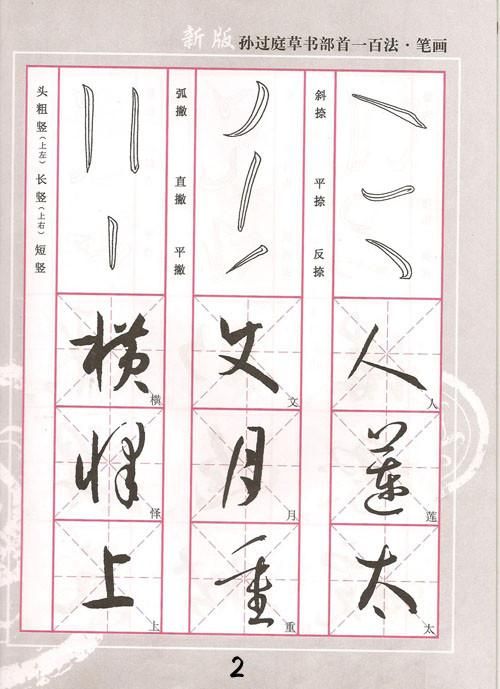 新版 孙过庭草书部首一百法·笔画
斜捺 平捺 反捺
弧撇 直撇 平撇
头粗竖(上左) 长竖(上右) 短竖
横 文 人
横 文 人
怿 月 莲
怿 月 莲
上 重 太
上 重 太
2